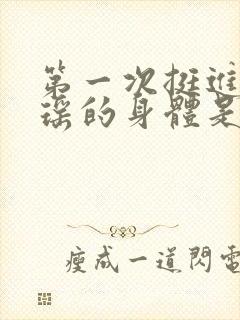 第一次挺進
瑤的身體是
瘦成一道閃電